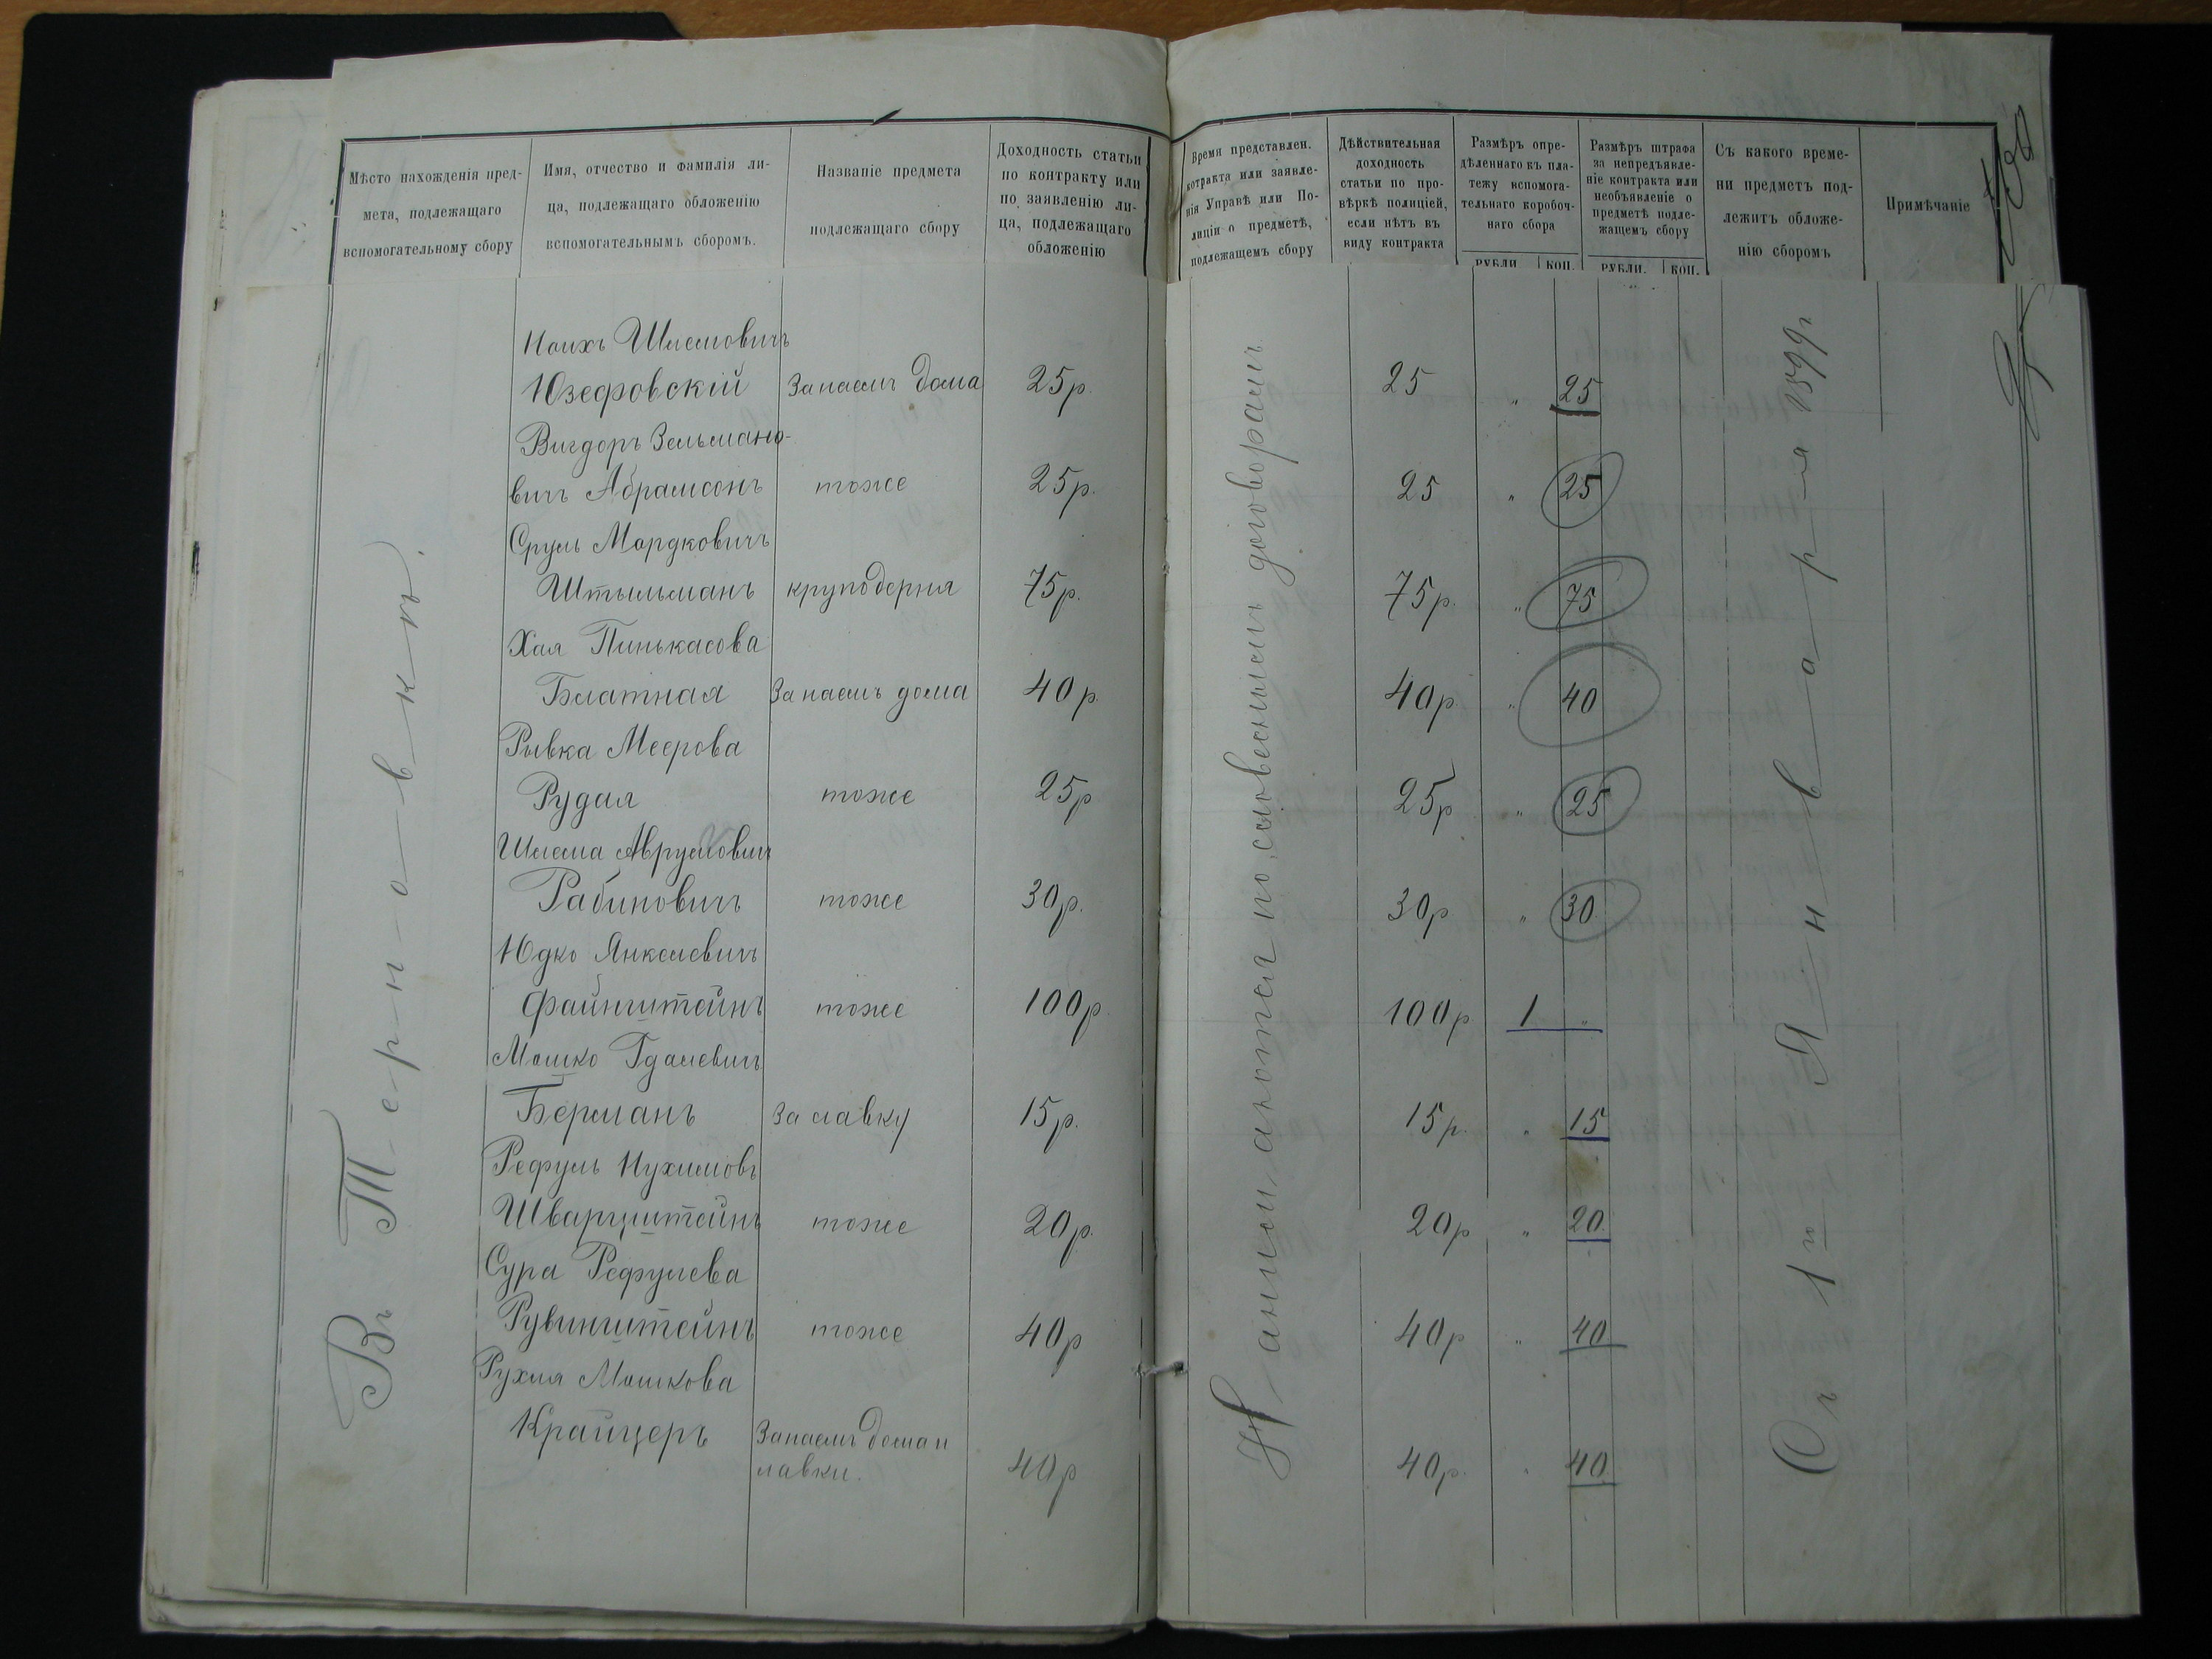 Мѣсто нахожденія пред-
мета, подлежащаго
вспомогательному сбору
Имя, отчество и фамилія ли-
ца, подлежащаго обложенію
вспомогательнымъ сборомъ.
Названіе предмета
подлежащаго сбору
Доходность статьи
по контракту или
по заявленію ли-
ца, подлежащаго
обложенію
Время представлен.
контракта или заявле-
нія Управѣ или По-
лиціи о предметѣ,
подлежащемъ сбору
Дѣйствительная
доходность
статьи по про-
вѣркѣ полиціей,
если нѣтъ въ
виду контракта
Размѣръ опре-
дѣленнаго къ пла-
тежу вспомога-
тельнаго коробоч-
наго сбора
РУБЛИ. КОП.
Размѣръ штрафа
за непредъявле-
ніе контракта или
необъявленіе о
предметѣ подле-
жащемъ сбору
РУБЛИ. КОП.
Съ какого време-
ни предметъ под-
лежитъ обложе-
нію сборомъ
Примѣчаніе
Въ Терновкѣ.
Нанимаются по словеснымъ договорамъ
Съ 1го Января 1899 г
Ноихъ Шлемовичъ
Юзефовскій За наемъ дома 25р. 25 " 25
Вигдоръ Зельмано-
вичъ Абрамсонъ тоже 25р. 25 " 25
Сруль Мордковичъ
Штыльманъ круподерня 75р. 75р. " 75
Хая Пинькасова
Блатная За наемъ дома 40р. 40р. " 40
Рывка Меерова
Рудая тоже 25р 25р " 25
Шлема Аврумовичъ
Рабиновичъ тоже 30р. 30р " 30
Юдко Янкелевичъ
Файнштейнъ тоже 100р. 100р 1 "
Мошко Гдалевичъ
Берманъ За лавку 15р. 15р. " 15
Рефуль Нухимовъ
Шварцштейнъ тоже 20р. 20р " 20
Сура Рефулева
Рувинштейнъ тоже 40р 40р " 40
Рухля Мошкова
Крайцеръ За наемъ дома и
лавки. 40р 40р. " 40